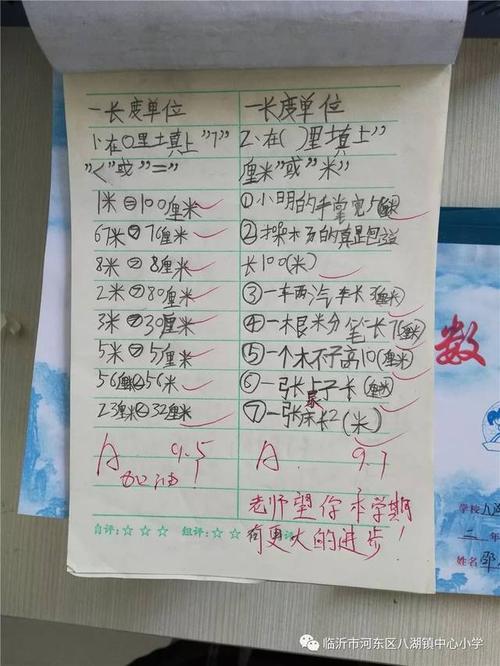 一长度单位
1、在○里土真上">"
"<"或"="
1米=100厘米
67米>76厘米
8米>8厘米
2米>80厘米
3米>30厘米
5米>5厘米
56厘米<56米
23厘米<32厘米
A 9.5
加油!
自评:☆ ☆ ☆ 组评:☆
一长度单位
2、在( )里土真上"
厘米"或"米"
①小明的手掌宽5(厘米)
长100(米)
③一车两汽车长3(厘米)
④一根米分笔长7(厘米)
⑤一个木不子高10(厘米)
⑥一张桌子长1(厘米)
⑦一张床长2(米)
A. 9.7
老师望你本学期
有更大的进步!
数
学校
二年
姓名
临沂市河东区八湖镇中心小学